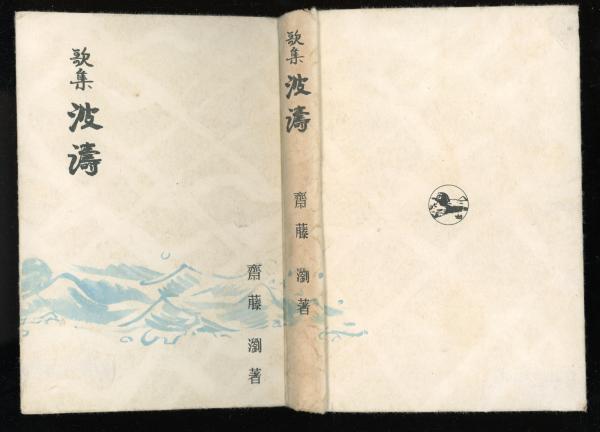 歌集 波濤
齋藤 瀏 著
歌集 波濤
齋藤 瀏 著